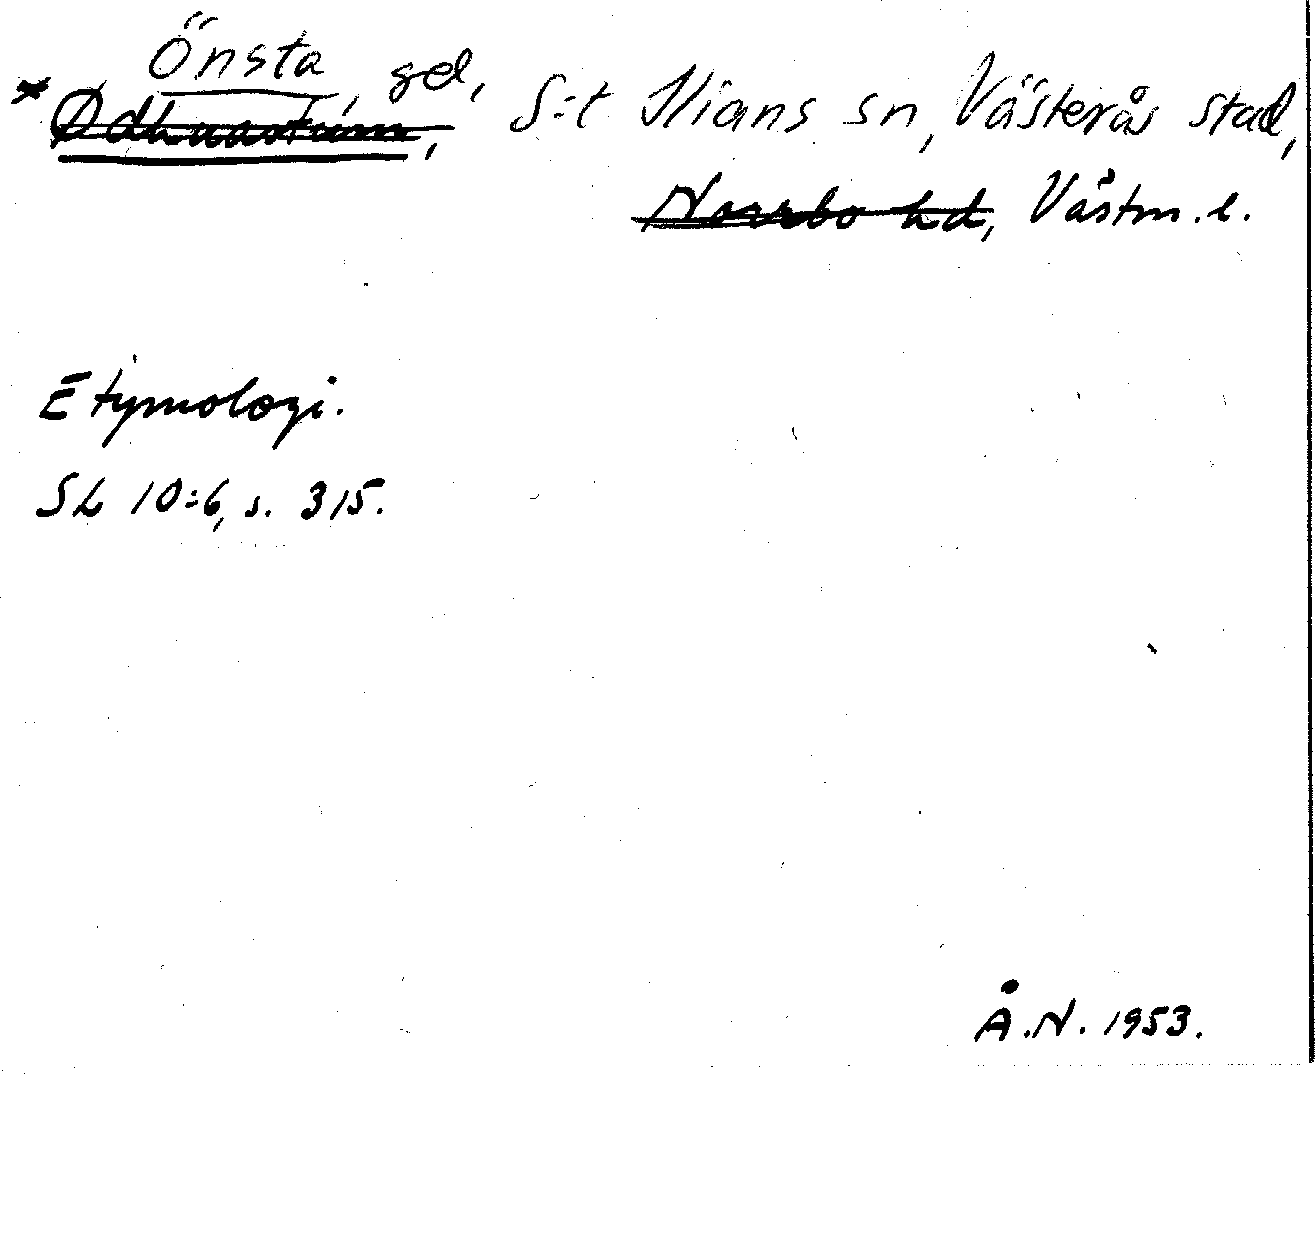 Önsta, gd,
* Ødhnastum, S:t Ilians sn, Västerås stad,
Norrbo hd, Västm. l.
Etymologi.
SL 10:6, s. 315.
Å.N. 1953.